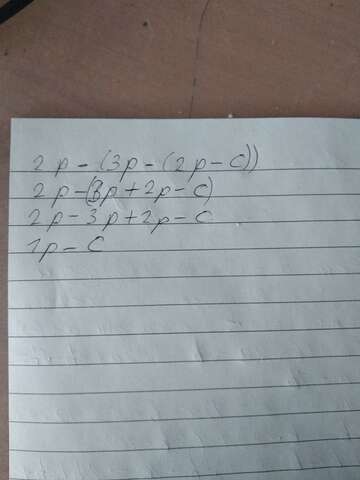 2p-(3p-(2p-c))
2p-(3p+2p-c)
2p-3p+2p-c
1p-c